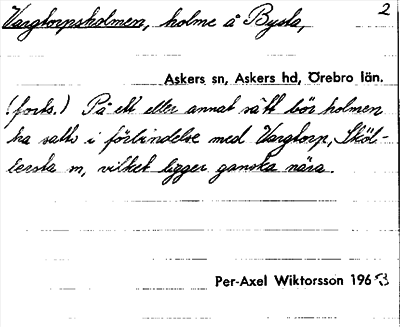 Vargtorpsholmen, holme å Bysta, 2
Askers sn, Askers hd, Örebro län.
(forts.) På ett eller annat sätt bör holmen
ha satts i förbindelse med Vargtorp, Sköl-
lersta sn, vilket ligger ganska nära.
Per-Axel Wiktorsson 1963